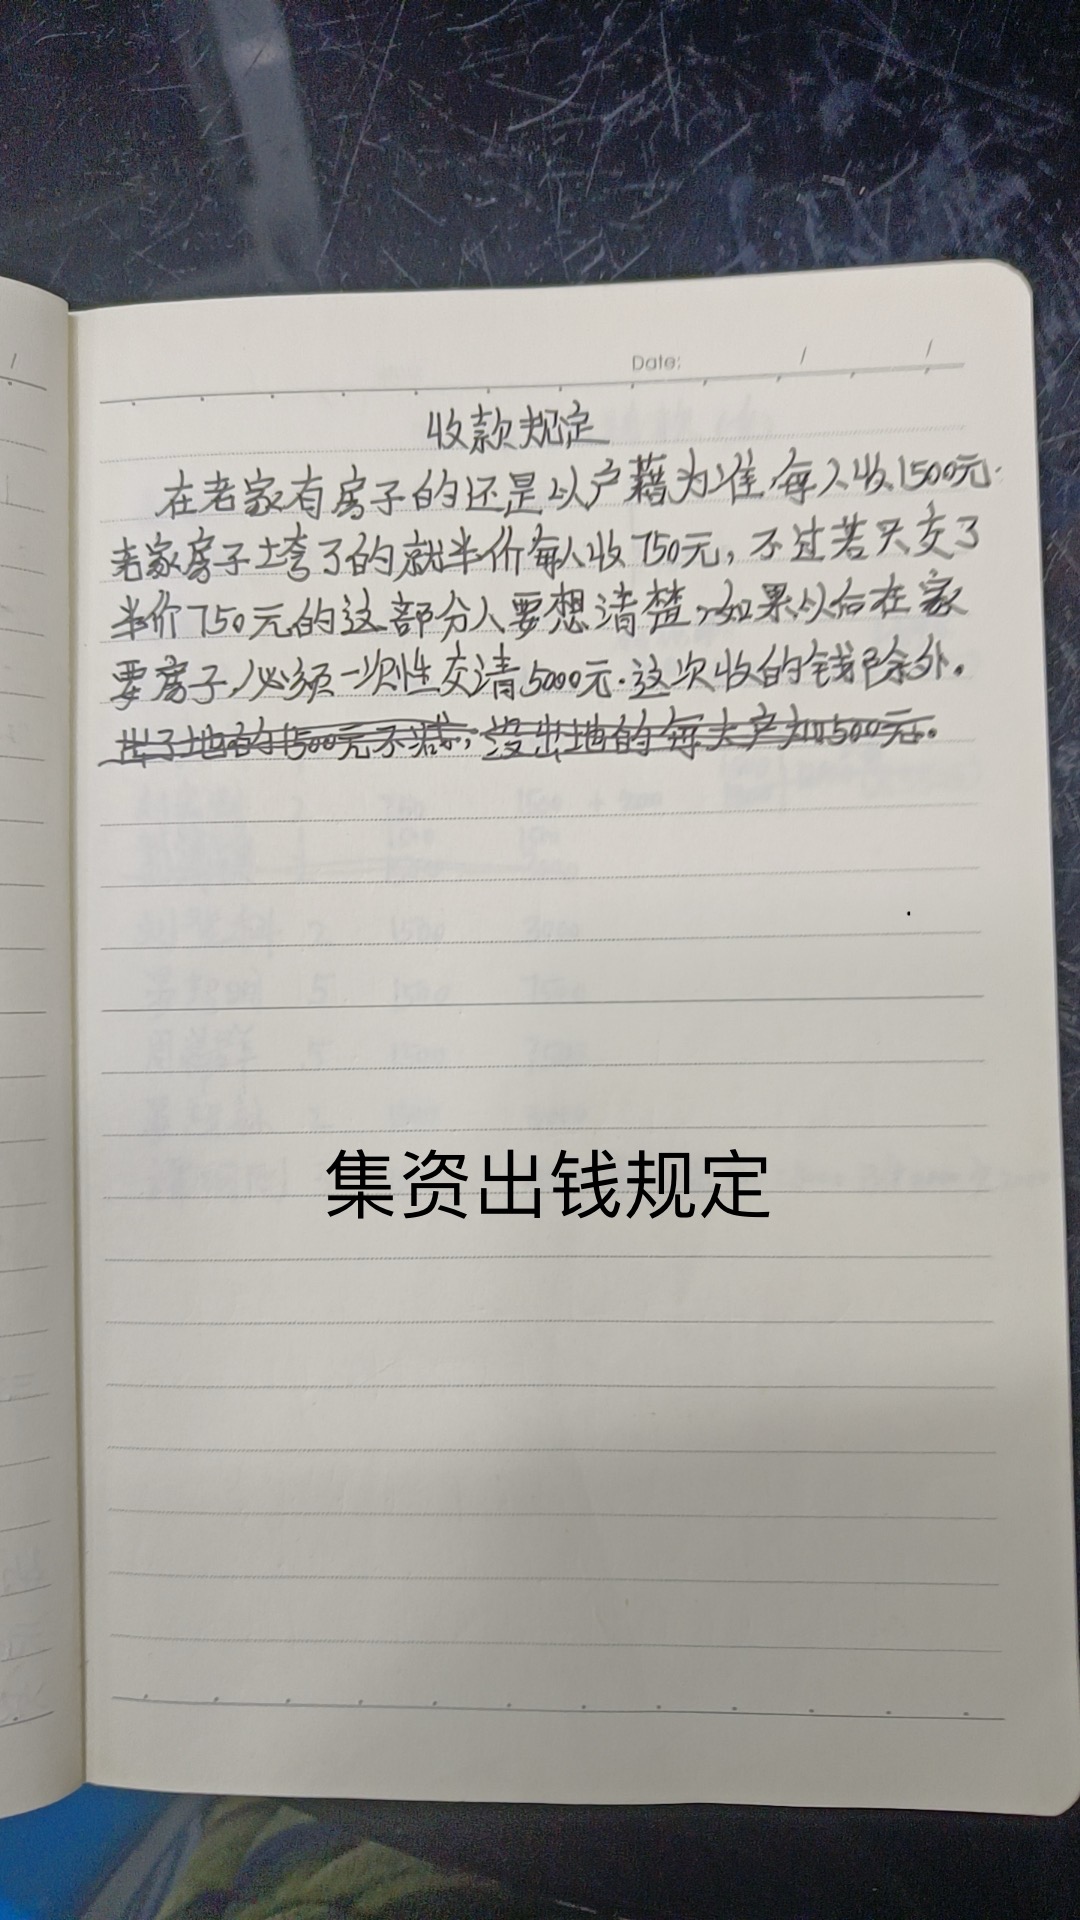 Date: / /
收款规定
在老家有房子的还是以户藉为准,每人收1500元.
老家房子土垮了的就半价每人收750元,不过若只交了
半价750元的这部分人要想清楚,如果以后在家
要房子,必须一次性交清5000元.这次收的钱除外。
出了地的1500元不准,没出地的每大户加1500元。
集资出钱规定